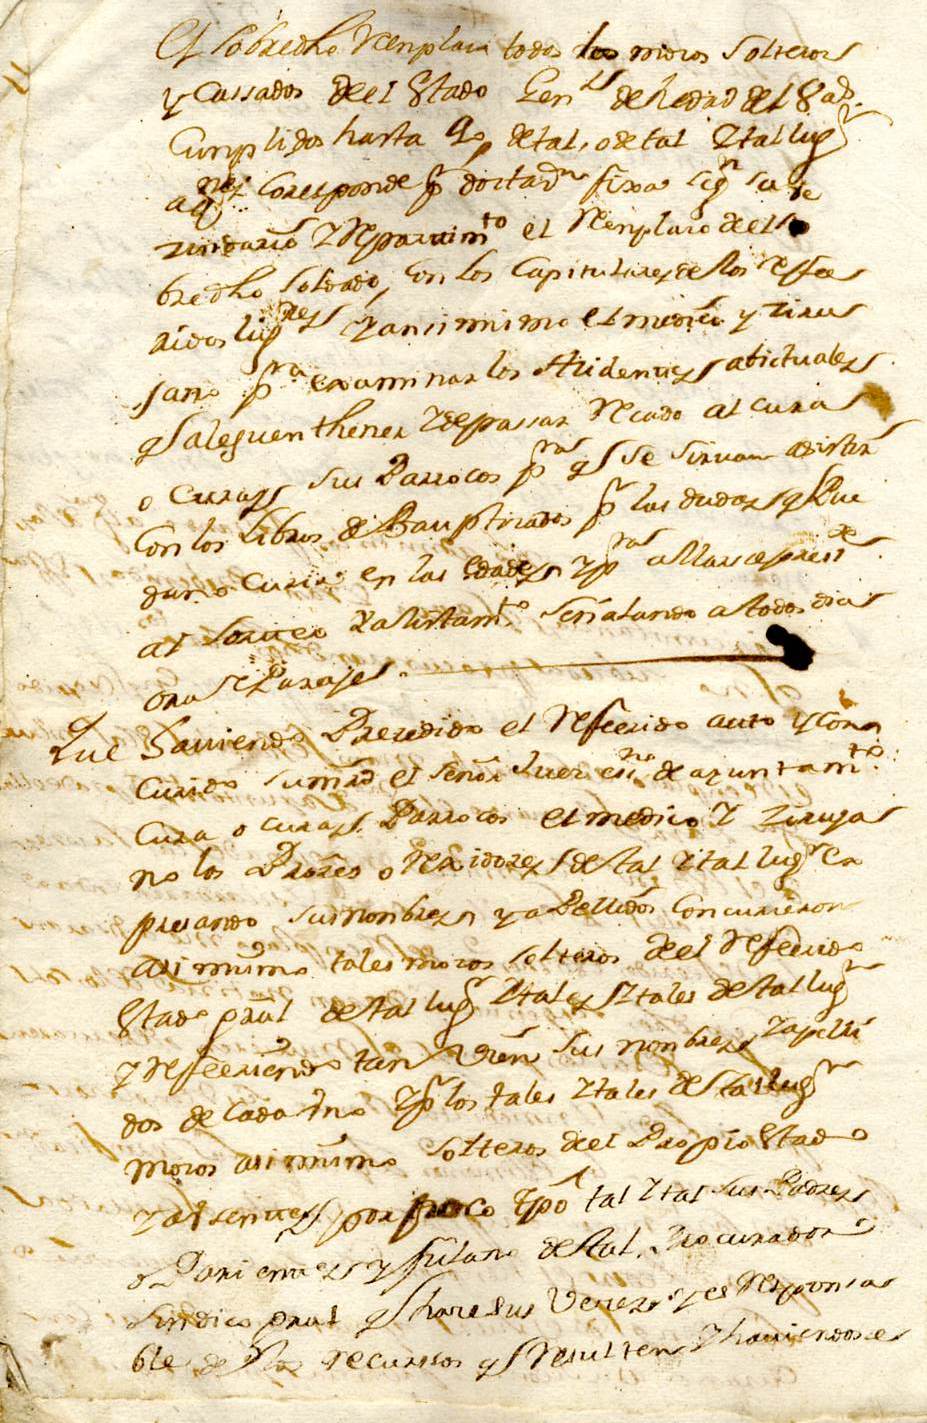 el sobredho Renplazo todos los mozos solteros
y cassados de el Estado Gen.l de hedad de 18 a.s
Cunplidos hasta 40 de tal, o de tal y tal lug.r
a q.nes Coresponde p.r
el Renplazo de el so
bredho soldado, con los Capitulares de los refe
ridos lug.res y ansi mimo el medico y ziru
jano p.ra examinar los Acidentes abictuales
q.s aleguen thener y de passar Recado al cura
o Curas sus Parrocos p.ra q.s se sirvan asistir
Con los libros de Bauptizados p.r las dudas q Pue
dan ocurir en las edades y p.ra allarse press.te
al sorteo y alistam.to señalando a todos dia
ora y Parajes.
Que Haviendo Precedido el Referido auto y con
currido su mrd el señor Juez ess.no de ayuntam.to
Cura o curas Parrocos el medico y ziruja
no los Prores o rexidores de tal y tal lug.r ex
presando sus nonbres y apellidos Concurieron
asi mismo tales mozos solteros de el referido
Estado gral de tal lug.r y tales y tales de tal lug.r
y refiriendo tan vien sus nonbres y apelli
dos de cada vno y p.r los tales y tales de tal lug.r
mozos asi mismo solteros de el Propio Estado
y ausentes por poco tpo tal y tal sus Padres
o Parientes y fulano de tal, Procurador
sindico gral q.s hace sus veces y es responsa
ble de los recurssos q.s Resulten y haviendose